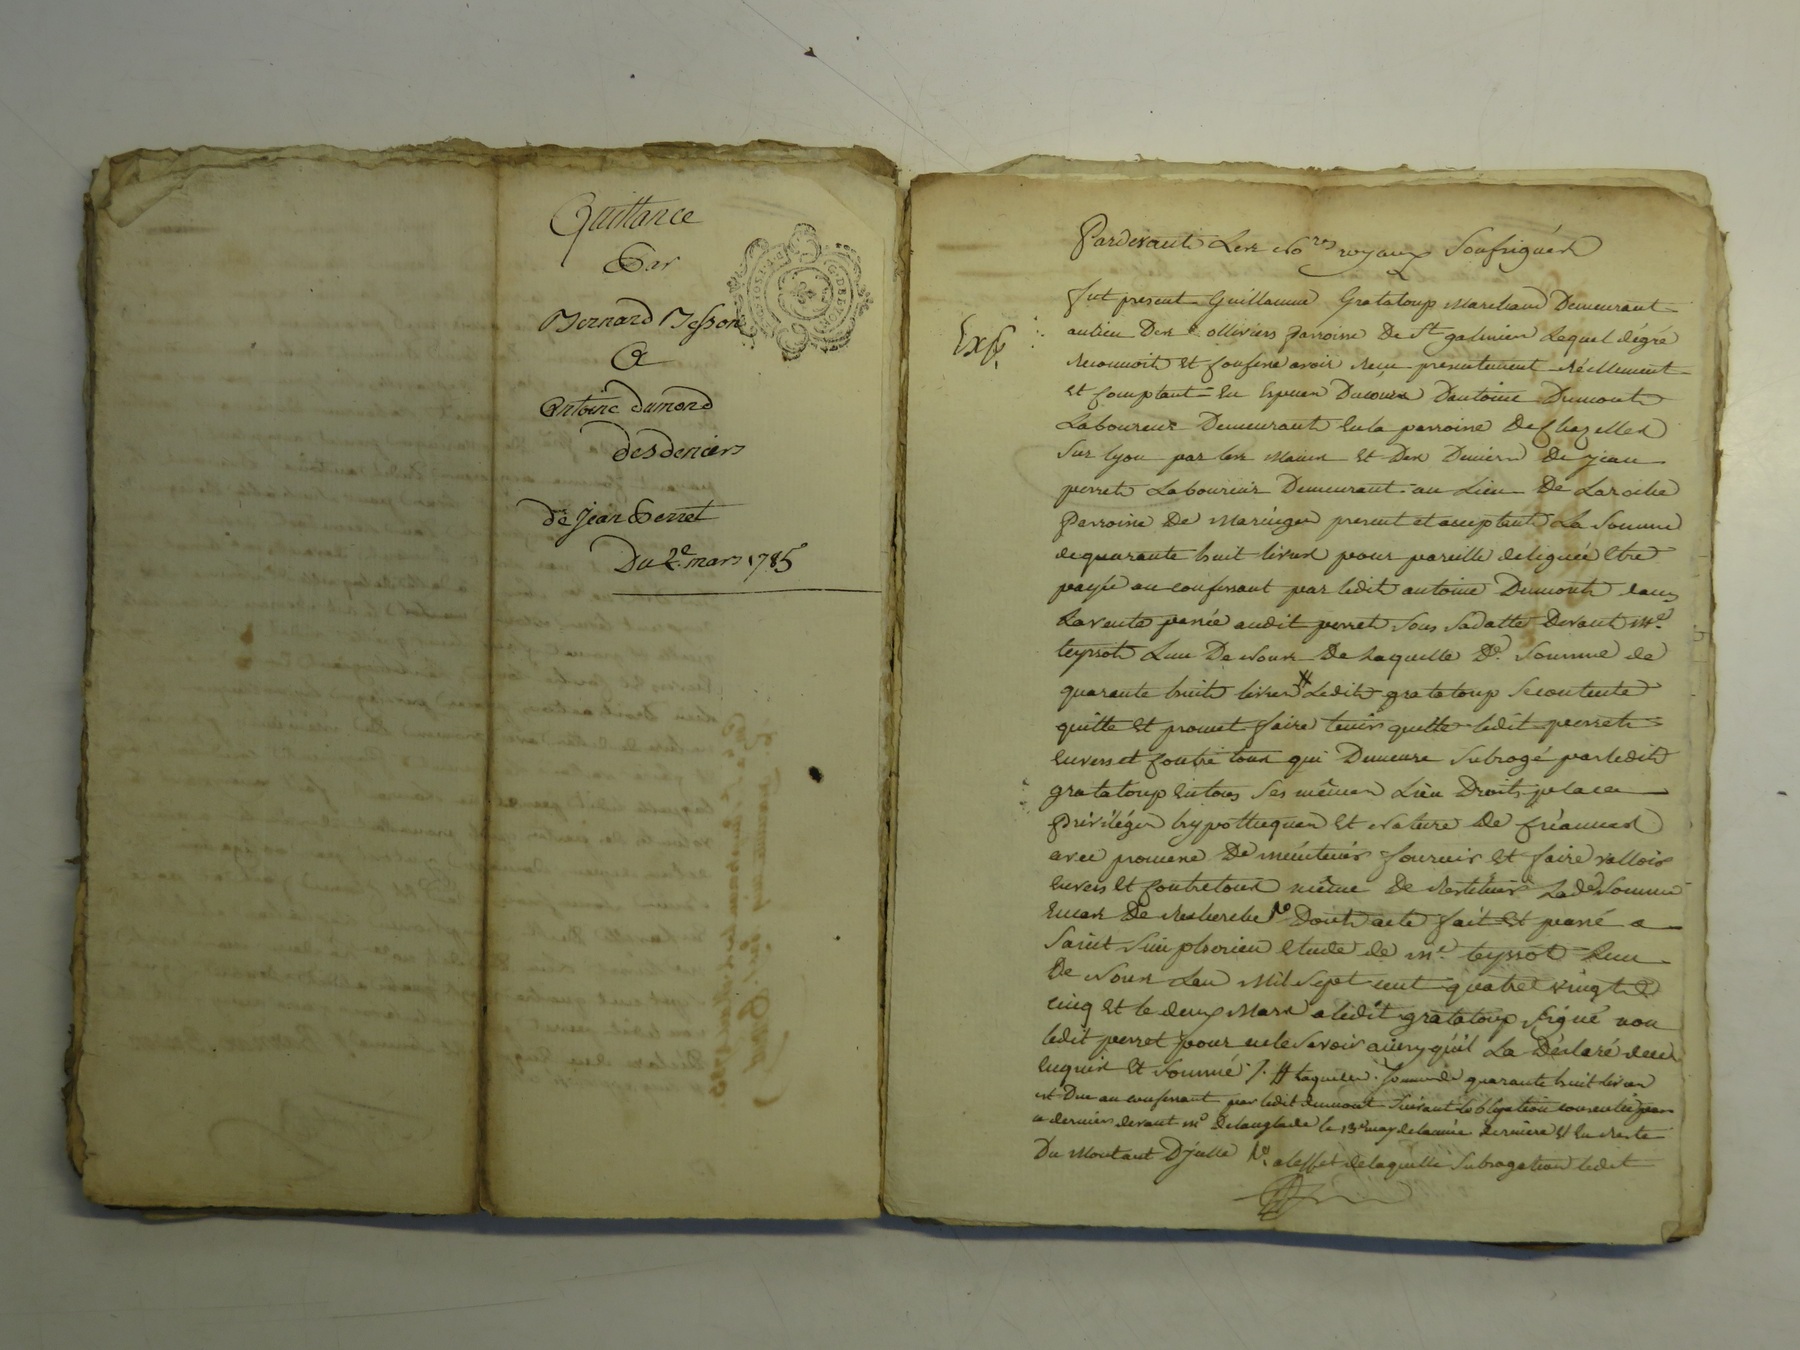 Quittance
Par
Bernard Besson
A
Antoine dumond
des deniers
de Jean Perret
Du 2e. mars 1785
Exp.
Pardevant Les No.res royaux Soussignés
fut present Guillaume Grataloup Marchand Demeurant
au lieu Des olliviers parroisse De St galmier Lequel dégré
reconnoit et confesse avoir reçu presentement réellement
et comptant En Especes Ducours D'antoine Dumont
Laboureur Demeurant En la parroisse De Chazelles
Sur lyon par les Mains et Des Deniers De jean
perret Laboureur Demeurant au Lieu De Laroche
Parroisse De Maringes present et acceptant La Somme
de quarante huit livres pour pareille deleguée Etre
payée au confessant par ledit antoine Dumont dans
La vente passée audit perret Sous Sa datte Devant Me.
teyssot L'un De Nous De Laquelle De. Somme de
quarante huit livres # Ledit grataloup Se contente
quitte Et promet faire tenir quitte ledit perret
Envers et contre tous qui Demeure Subrogé par ledit
grataloup En tous Ses mêmes Lieu Droits places
Priviléges hypotheques Et Nature De Créances
avec promesse De maintenir fournir Et faire valloir
Envers Et Contre tous même De Restituer Lade. Somme
En cas De Recherche Dont acte fait Et passé a
Saint Simphorien etude de Me. teyssot L'un
De Nous L'an Mil Sept cent quatre vingt
cinq et le deux Mars a ledit grataloup Signé non
ledit perret pour ne le Savoir ainsy qu'il La Declaré de ce
Enquis Et Sommé ./. # laquelle Somme de quarante huit livres
est Due au confessant par ledit dumont Suivant L'obligation consentie par
ce dernier devant Me. Delanglade le 13e may de l'année derniere Et En Reste
Du Montant D'icelle a l'effet de laquelle Subrogation ledit